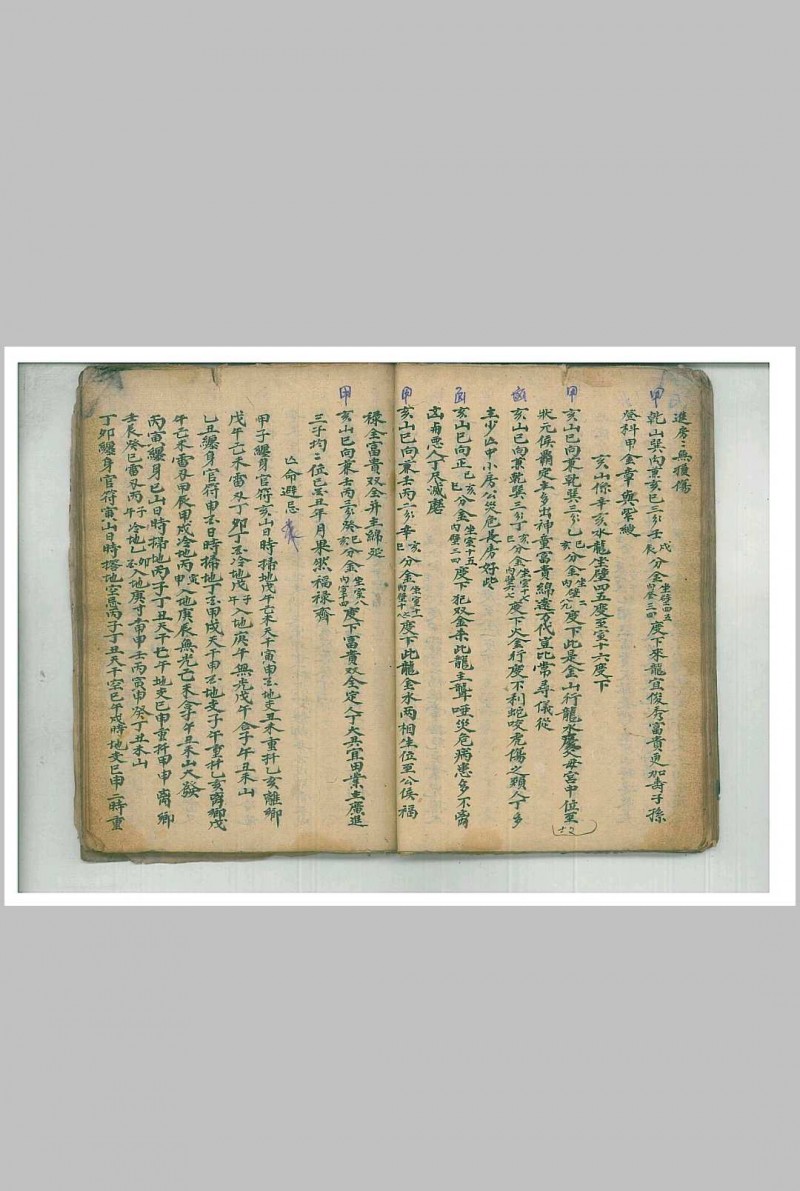 進房々無獲傷
甲 乾山巽向兼亥巳三分壬戌壬辰分金坐壁四五度下來龍宜俊秀富貴更加壽子孫
登科甲金章與紫綬
亥山係辛亥水龍坐壁四五度至室十六度下
甲 亥山巳向兼乾巽三分乙亥乙巳分金度下此是金山行龍水父母宮中位至
狀元侯霸定主多出神童富貴綿遠萬代宜比常尋儀從
凶 亥山巳向兼乾巽三分丁亥丁巳分金坐室十七度下火金行度不利蛇咬虎傷之類人丁多
主少亡中小房公災危長房好些
凶 亥山巳向正己亥己巳分金坐室十五度下犯双金杀此龍主聾啞災危病患多不離
惡人丁尽滅磨
甲 亥山巳向兼壬丙三分辛亥辛巳分金度下此龍金水兩相生位至公侯福
祿全富貴双全并主綿延
甲 亥山巳向兼壬丙三分癸亥分金度下富貴双全定人丁大共宜田業主廣進
三子均々位巳丑年月果然福祿齊
亡命避忌
甲子纏身官符亥山日時掃地戊午己未天干寅申地支丑未重折乙亥離鄉
戊午己未雷丁卯冷地戊子午入地庚午無光戊午合子午丑未山
乙丑纏身官符申日時掃地丁甲戌天干申地支子午重折乙亥離鄉戊
午己未雷甲辰甲戌冷地丙申入地庚辰無光己未合子午丑未山大發
丙寅纏身巳山日時掃地丙子丁丑天干巳午地支巳申重折甲申離鄉
壬辰癸巳雷丙子午冷地入地庚寅甲壬丙寅申癸丁丑未山
丁卯纏身官符寅山日時掃地空忌丙子丁丑天干空巳午戌時地支巳申二時重